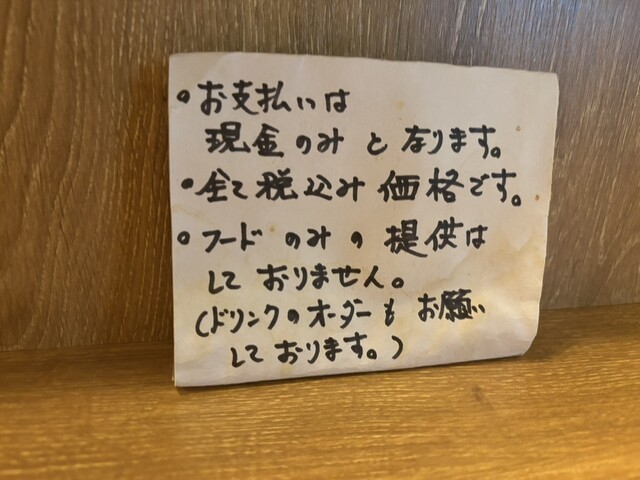 ・お支払いは
現金のみとなります。
・全て税込み価格です。
・フードのみの提供は
しておりません。
(ドリンクのオーダーもお願い
しております。)